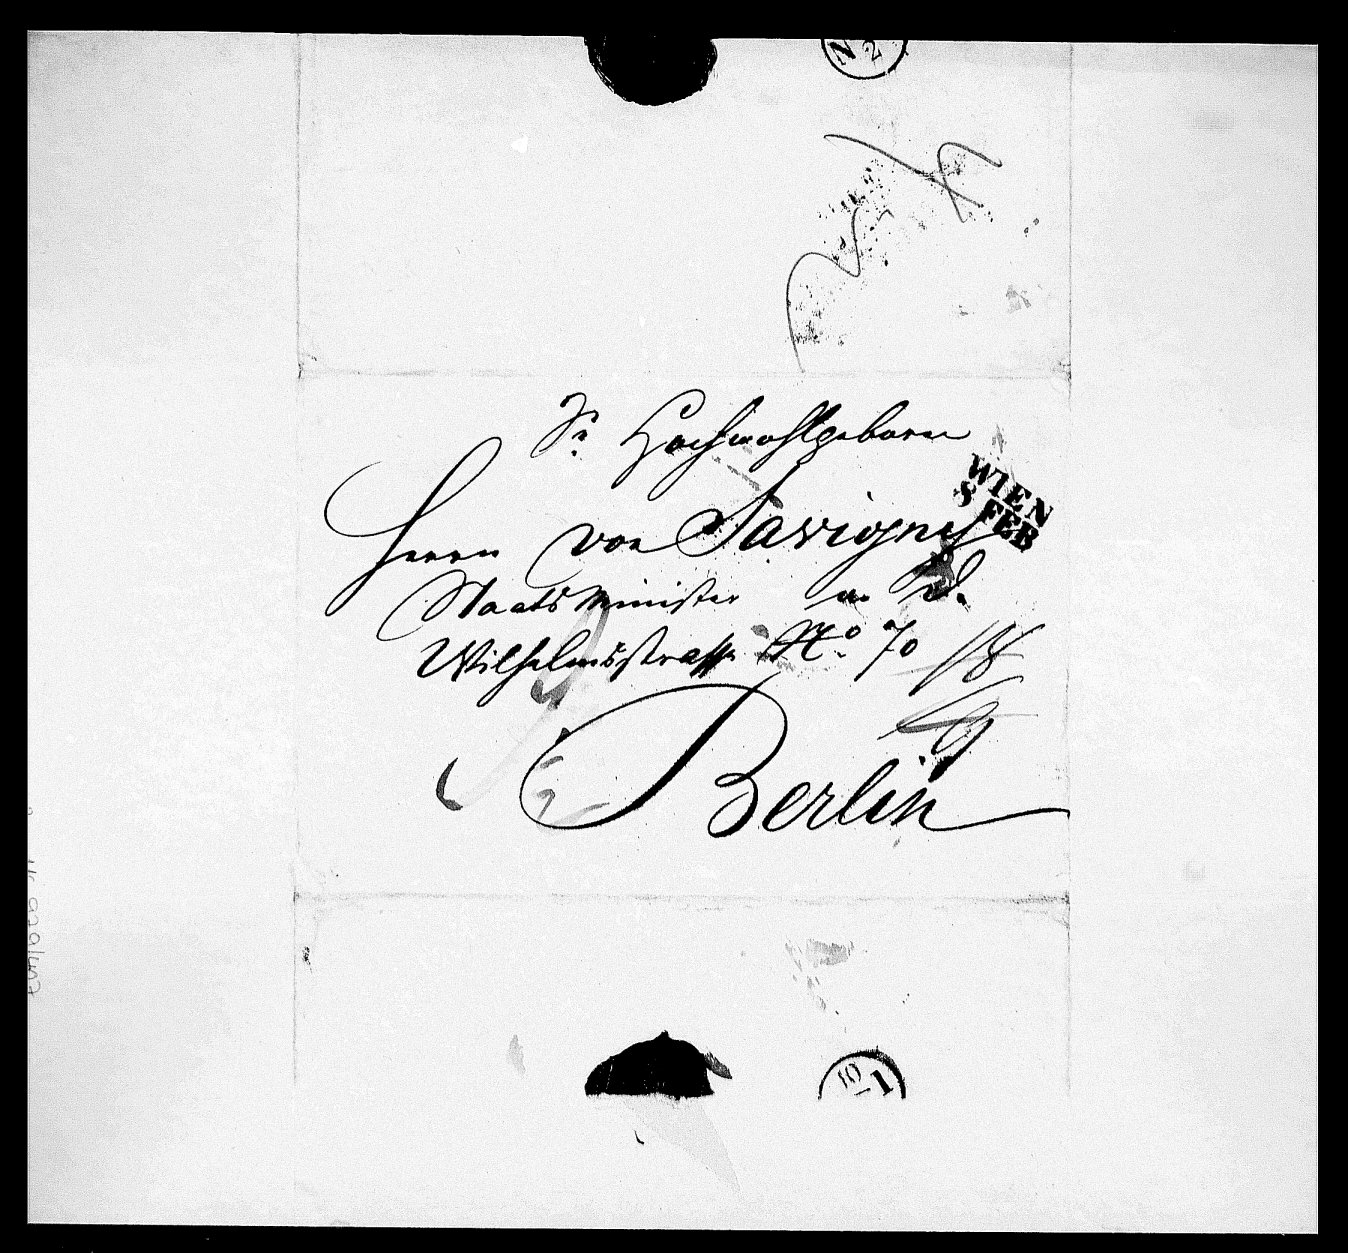 N 2
Sr Hochwohlgeboren
WIEN
8 FEB
Herrn von Savigny
Staatsminister a. D.
Wilhelmsstrasse No. 70
Berlin
10 1